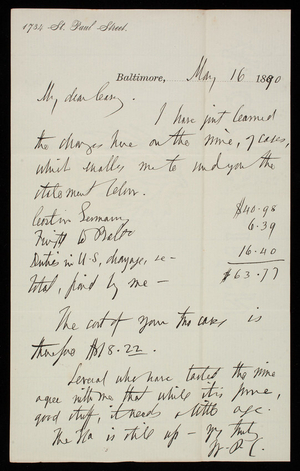 1734 St. Paul Street.
Baltimore, May 16 1890
My dear Casey.
I have just learned
the charges here on the wine, 7 cases,
which enables me to send you the
statement below.
Cost in Germany $40.98
Fright to Balto 6.39
Duties in U.S, drayage, &c - 16.40
Total, paid by me - $63.77
The cost of your two cases is
therefore $18.22.
Several who have tasted the wine
agree with me that while it is pure,
good stuff, it needs a little age.
The is still up - my
W. P. C.